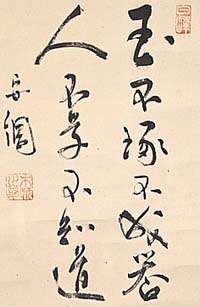 玉不琢不成器
人不学不知道